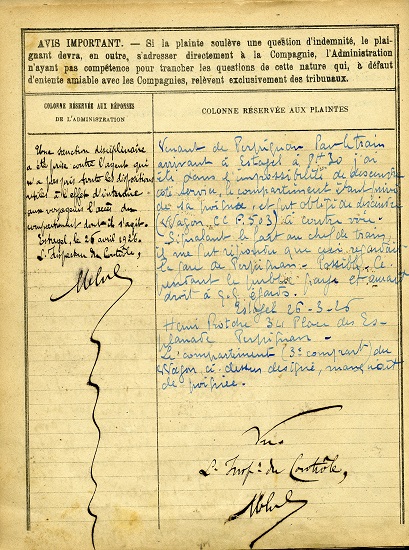 AVIS IMPORTANT. — Si la plainte soulève une question d'indemnité, le plai-
gnant devra, en outre, s'adresser directement à la Compagnie, l'Administration
n'ayant pas compétence pour trancher les questions de cette nature qui, à défaut
d'entente amiable avec les Compagnies, relèvent exclusivement des tribunaux.
COLONNE RÉSERVÉE AUX RÉPONSES
DE L'ADMINISTRATION
Une sanction disciplinaire
a été prise contre l'agent qui
n'a pas pris toutes les dispositions
utiles à l'effet d'interdire
aux voyageurs l'accès du
compartiment dont il s'agit.
Estagel, le 26 avril 1926.
L'Inspecteur du Contrôle,
COLONNE RÉSERVÉE AUX PLAINTES
Venant de Perpignan Par le train
arrivant à Estagel à 8h30 j'ai
été dans l'impossibilité de descendre
côté le compartiment étant privé
de sa poignée, et fut obligé de descendre
(Wagon CC F. 503) à contre voie.
Signalant le fait au chef de train,
il me fut répondu que ceci regardait
la gare de Perpignan. Possible. Ce-
pendant le public paye et aurait
droit à q.q. égards.
Estagel 26-3-26
Henri 34 Place des Es-
planade Perpignan.
Le compartiment (3e compart du
Wagon ci-dessus désigné, manquait
de poignée.
Vu
L'Insp. du Contrôle,